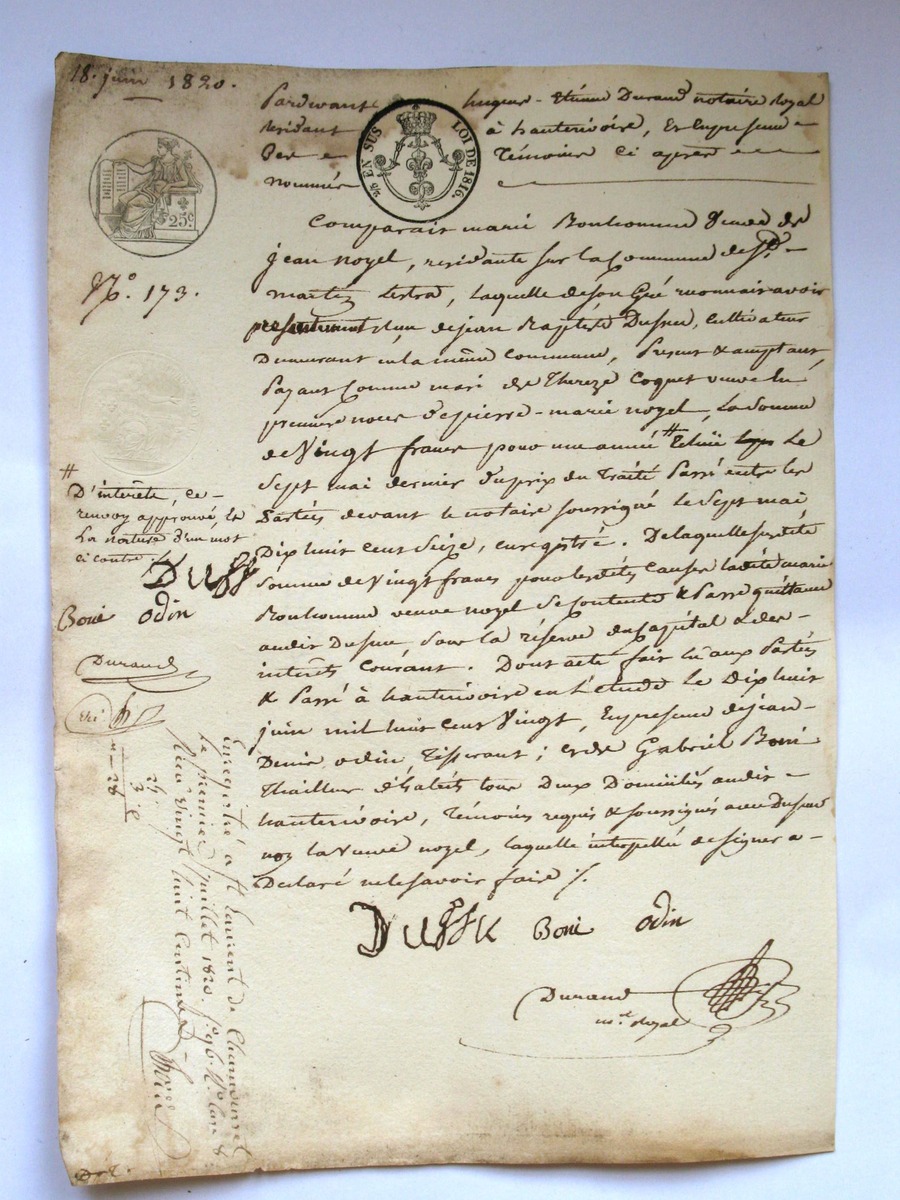 18. juin 1820.
Pardevant hugues-Etienne Durand notaire Royal
Residant à hauterivoire, En la presence
Des Témoins Ci après
nommés
2/5 EN SUS LOI DE 1816.
25c.
Comparait marie Bonhomme Veuve de
jean noyel, residante sur la Commune de St.
N.o 173.
martin lestra, laquelle de son Gré reconnait avoir
presentement de jean Baptiste Dussuc, Cultivateur
Demeurant en la même Commune, Present & acceptant,
Payant Comme mari de Thereze Coquet veuve en
premiere noces de pierre-marie noyel, La Somme
de Vingt francs pour une année # Echüe Le
Sept mai dernier du prix du Traité Passé entre les
Parties devant le notaire soussigné le Sept mai
Dix huit Cent Seize, enregistré. De laquelle susdite
Somme de Vingt francs pour lesdites Causes ladite marie
Bonhomme veuve noyel se Contente & Passe quittance
audit Dussuc, sous la réserve du Capital & des
interêts Courant. Dont acte fait lu aux Parties
& Passé à hauterivoire en l'étude le Dix huit
juin mil huit Cent Vingt, En presence de jean
Denis odin, Tisserant; et de Gabriel Boni
Thailleur d'habits tous Deux Domiciliés audit
hauterivoire, Témoins requis & soussignés avec Dussuc
non la Veuve noyel, laquelle interpellée de signer a
Declaré ne le savoir faire ./.
#
D'interêts, ce
renvoy approuvé, &
La rature d'un mot
ci contre.
Duss
Boni odin
Durand
Enregistré à St Laurent de Chamousset
Le premier juillet 1820. f.o 96. R.o Case 8
Reçu Vingt huit Centimes
DussuC Boni odin
Durand
n.re Royal